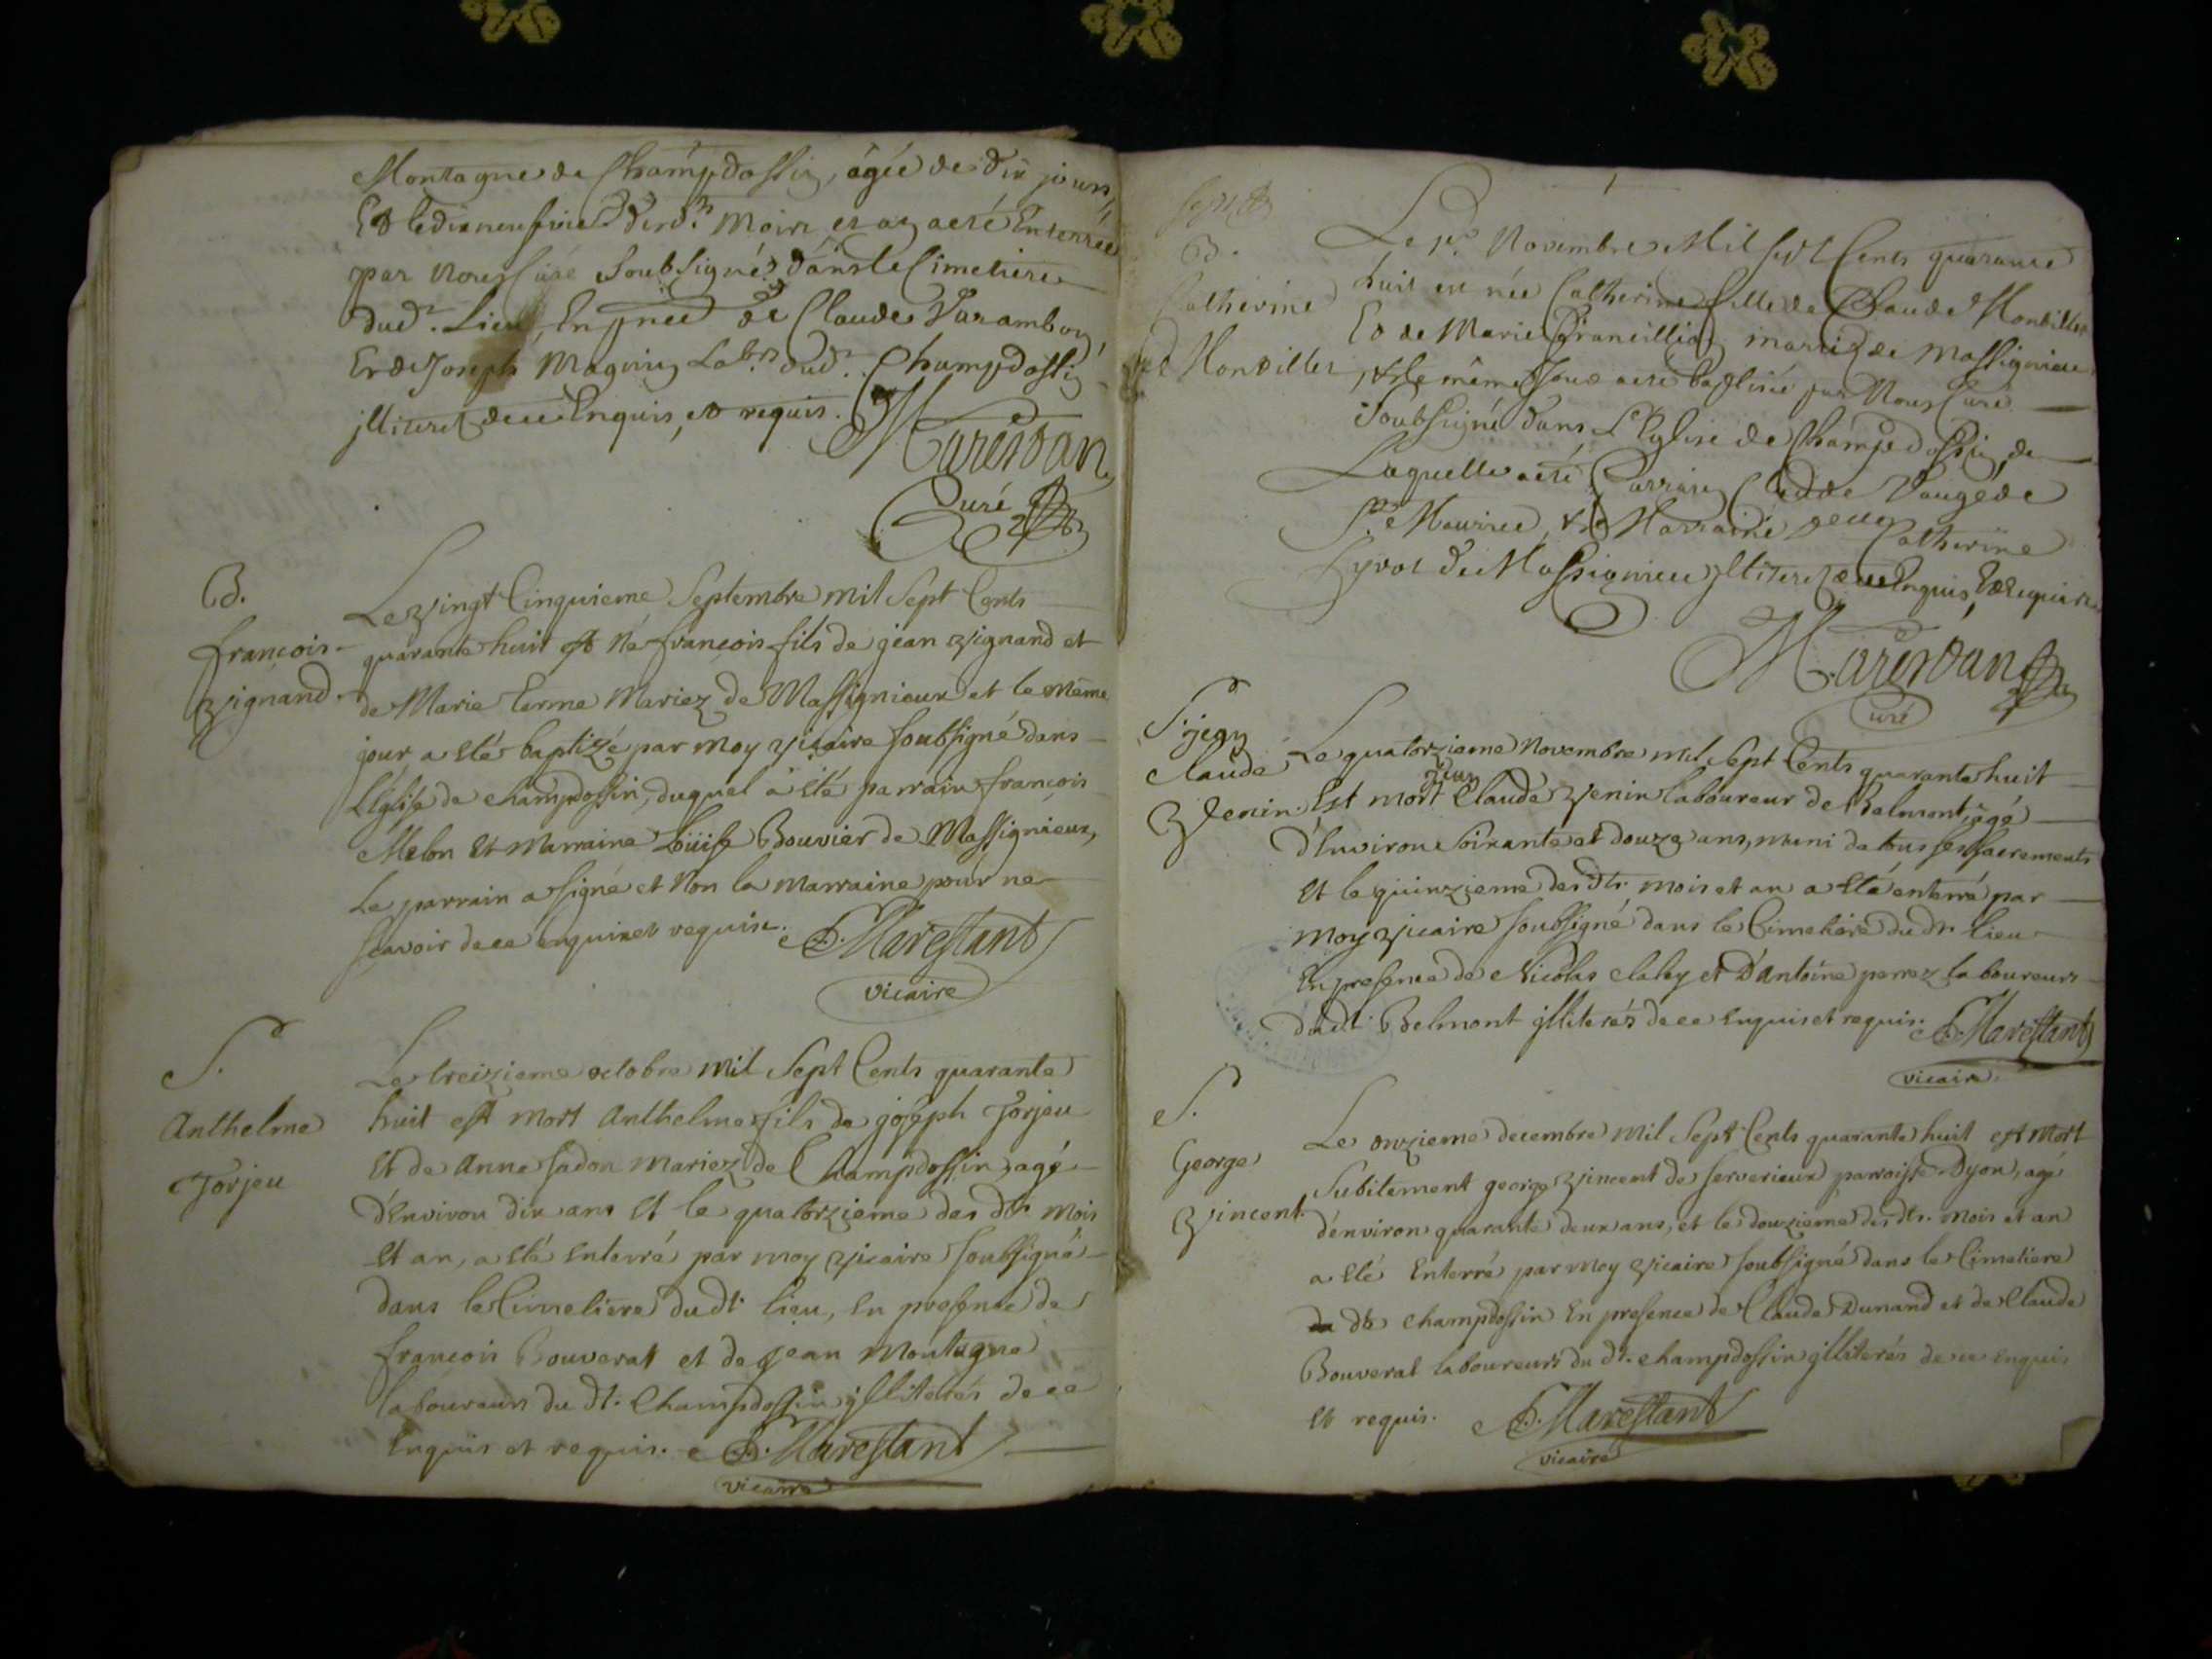 Montagne de Champdossin, âgée de dix jours,
Et le dixneufvie. desd.ts Mois et an a esté Enterrée
par Nous Curé Soubsigné dans le Cimetiere
dud.t Lieu, En pñce de Claude Varambon,
Et de Joseph Magnin Lab.rs dud.t Champdossin
jlliterez de ce Enquis, et requis.
Marestan
Curé
B.
françois
vignand.
Le vingt Cinquieme Septembre mil Sept Cents
quarante huit est Né françois fils de jean vignand et
de Marie terme Mariez de Massignieux et le même
jour a eté baptizé par moy vicaire soubsigné dans
l'Eglise de champdossin, duquel a eté parrain françois
Melon et Marraine Loüise Bouvier de Massignieux,
Le parrain a signé et Non la Marraine pour ne
sçavoir de ce enquise et requise. Marestant
vicaire
S.
Anthelme
Jorjeu
Le treizieme octobre Mil Sept Cents quarante
huit est mort Anthelme fils de joseph Jorjeu
et de Anne sadon Mariez de Champdossin, agé
d'Environ dix ans et le quatorzieme des dts Mois
et an, a eté Enterré par moy vicaire soubsigné
dans le Cimetiere du dt. lieu, En presence de
françois Bouverat et de jean Montagne
laboureurs du dt. Champdossin jlliterés de ce
Enquis et requis. Marestant
vicaire
B.
Catherine
Montillet
Le p.er Novembre Mil Sept Cents quarante
huit est née Catherine fille de Claude Montillet
Et de Marie mariez de Massignieu
et le même jour a esté baptisée par Nous Curé
Soubsigné dans L'Eglise de Champdossin, de
Laquelle a esté Parrain Claude Vaugède
S.t Maurice, et Marraine Catherine
Lyvot de Massignieu jlliterez de ce Enquis, et Requis
Marestan
Curé
S. jean
Claude
Venin.
Le quatorzieme Novembre mil Sept Cents quarante huit
jean
Est mort Claude Venin laboureur de Belmont, agé
d'Environ Soixante et douze ans, muni de tous ses sacrements
et le quinzieme des dts. mois et an a eté enterré par
moy vicaire soubsigné dans le Cimetiere du dt. lieu
En presence de Nicolas claley et d'Antoine perrez laboureurs
du dt. Belmont jlliterés de ce Enquis et requis. Marestant
vicaire.
S.
George
Vincent.
Le onzieme decembre Mil Sept Cents quarante huit est Mort
Subitement george Vincent de serverieux parroisse Dyon, agé
d'environ quarante deux ans, et le douzieme des dts. Mois et an
a eté Enterré par Moy vicaire soubsigné dans le Cimetiere
de dt champdossin En presence de Claude Dunand et de Claude
Bouverat laboureurs du dt. champdossin jlliterés de ce enquis
et requis. Marestant
vicaire